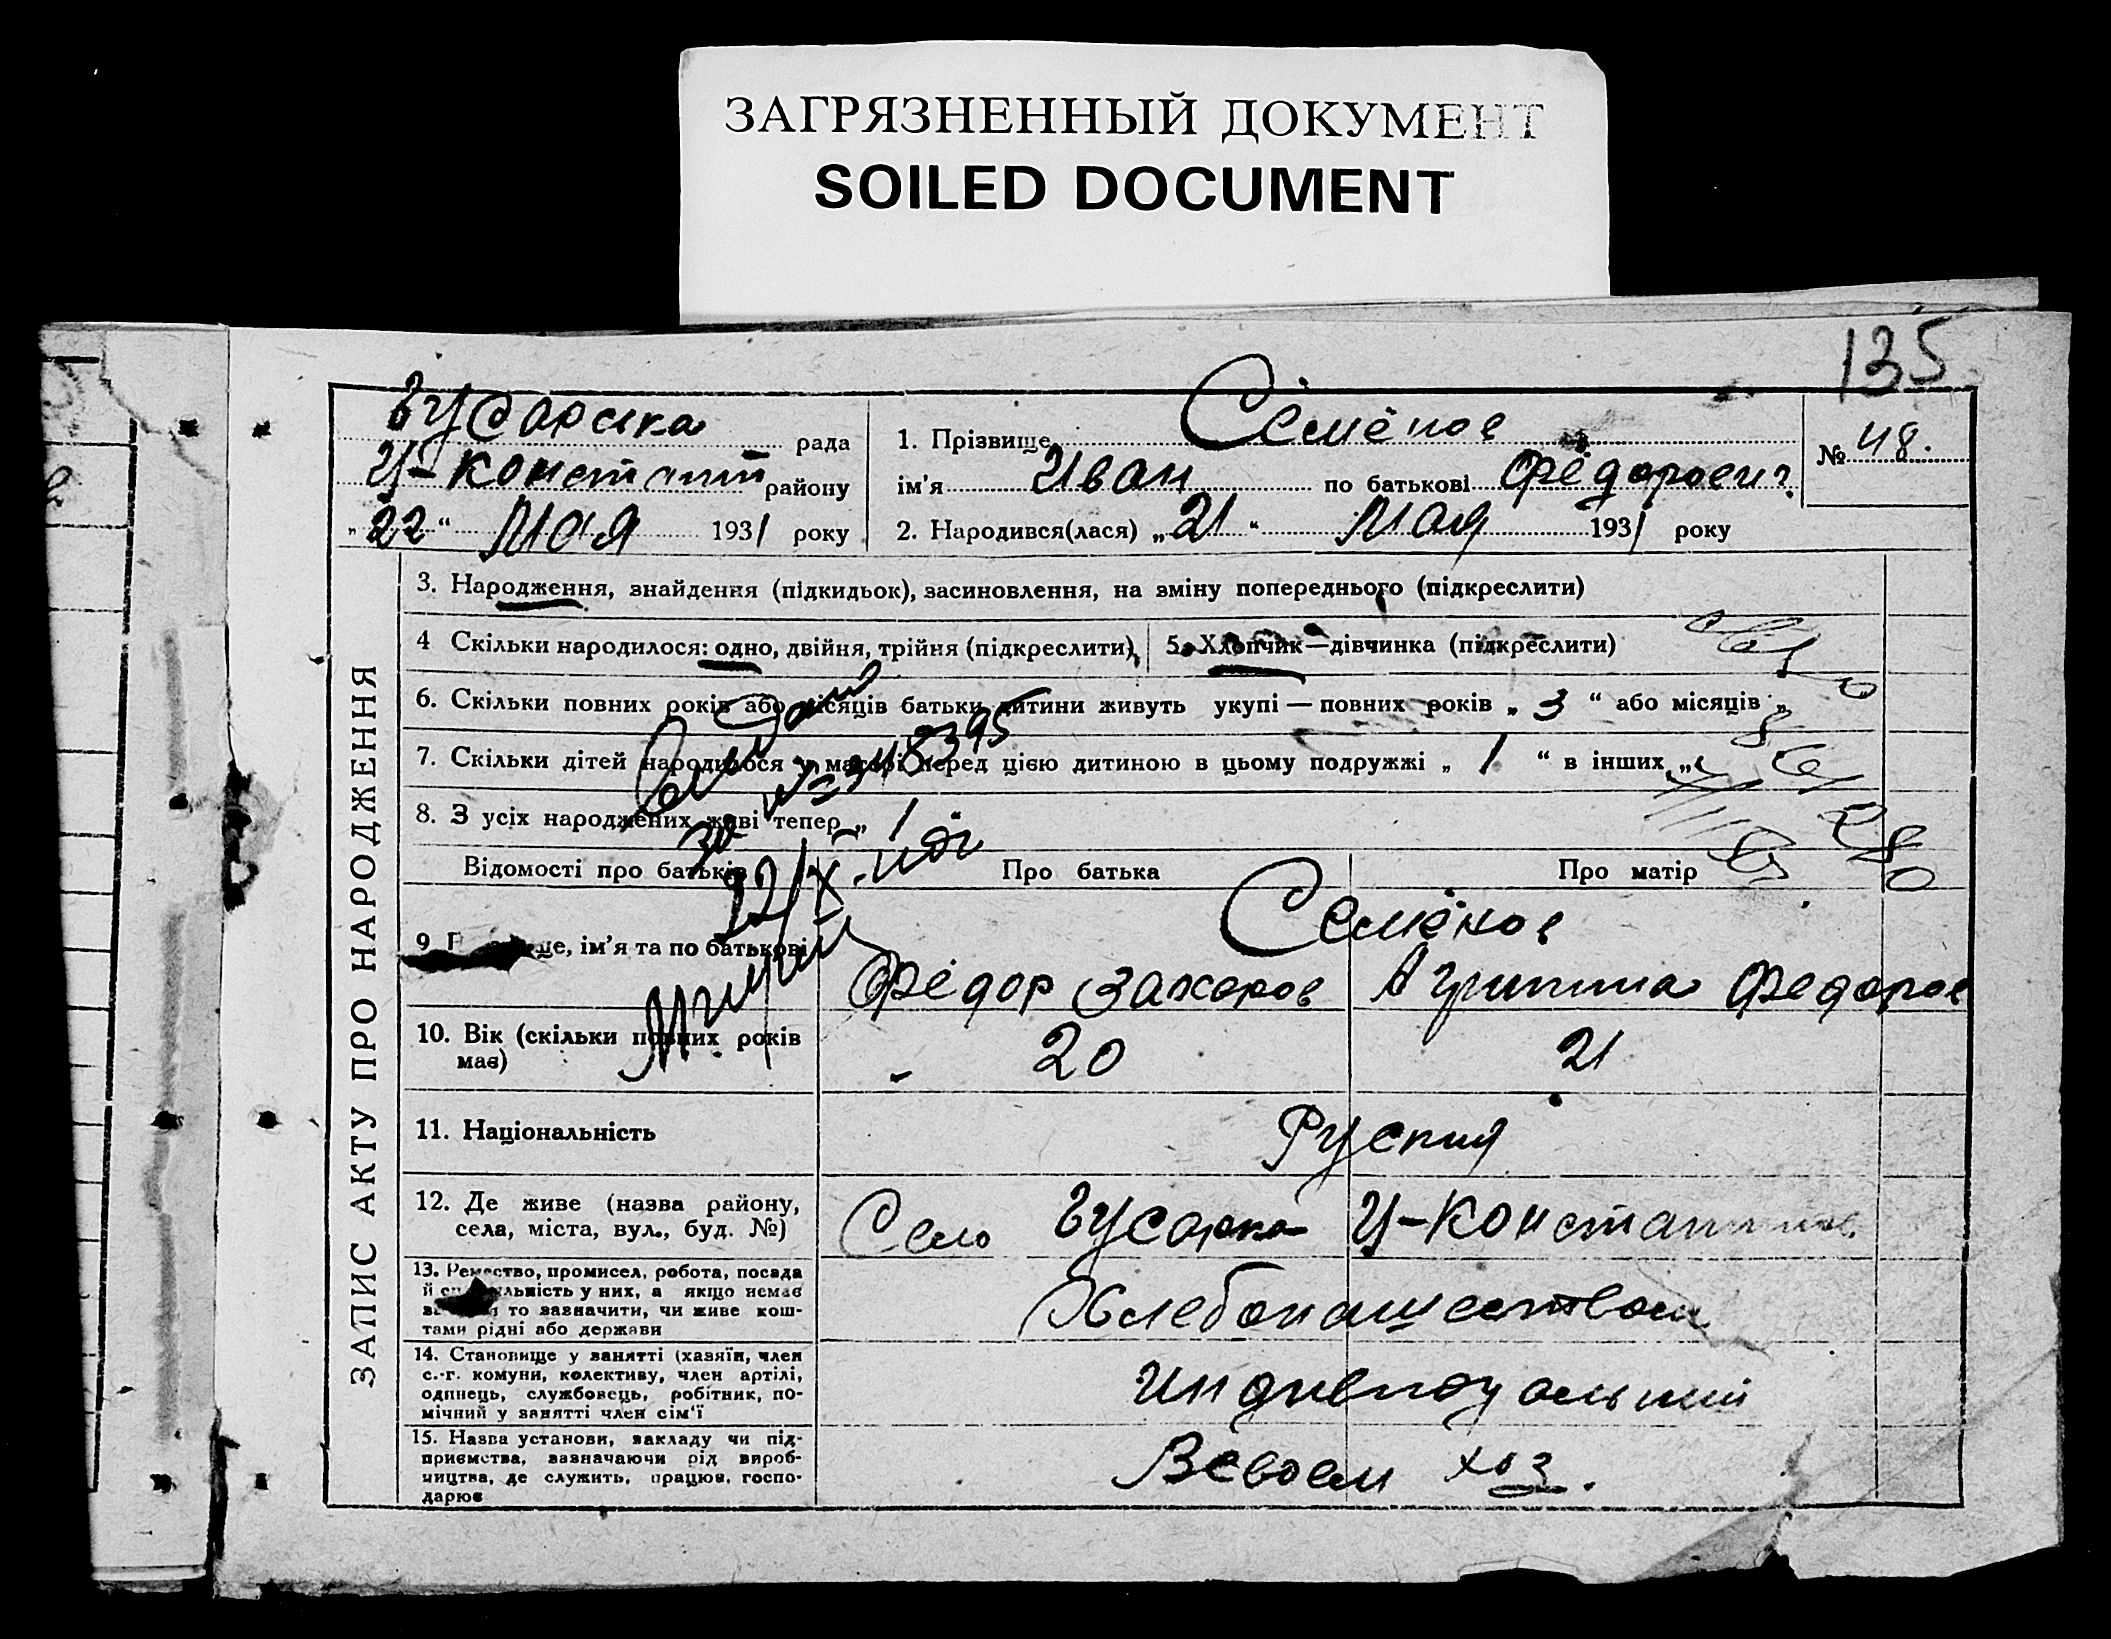 ЗАГРЯЗНЕННЫЙ ДОКУМЕНТ
SOILED DOCUMENT
135
Гусарска рада
Ц-Констант району
„22“ Мая 1931 року
1. Прізвище Семёнов
ім'я Иван по батькові Фёдорович
2. Народився(лася) „21“ Мая 1931 року
№ 48.
ЗАПИС АКТУ ПРО НАРОДЖЕННЯ
3. Народження, знайдення (підкидьок), засиновлення, на зміну попереднього (підкреслити)
4 Скільки народилося: одно, двійня, трійня (підкреслити)
5. Хлопчик—дівчинка (підкреслити)
6. Скільки повних років або місяців батьки дитини живуть укупі — повних років „ 3 “ або місяців „
7. Скільки дітей народилося у матері перед цією дитиною в цьому подружжі „ 1 “ в інших „
8. З усіх народжених живі тепер „ 1
Відомості про батьків Про батька Про матір
Семёнов
9 ще, ім'я та по батькові Фёдор Захаров Агрипина Федоров
10. Вік (скільки повних років
має) 20 21
11. Національність Руспия
12. Де живе (назва району,
села, міста, вул., буд. №) Село Гусарка Ц-Константинов.
13. Ремество, промисел, робота, посада
й спеціальність у них, а якщо немає
то зазначити, чи живе кош-
тами рідні або держави
Хлебопашеством
14. Становище у занятті (хазяїн, член
с.-г. комуни, колективу, член артілі,
одинець, службовець, робітник, по-
мічний у занятті член сім'ї
Индивидуальний
15. Назва установи, закладу чи під-
приємства, зазначаючи рід вироб-
ництва, де служить, працює, госпо-
дарює
В своем хоз.